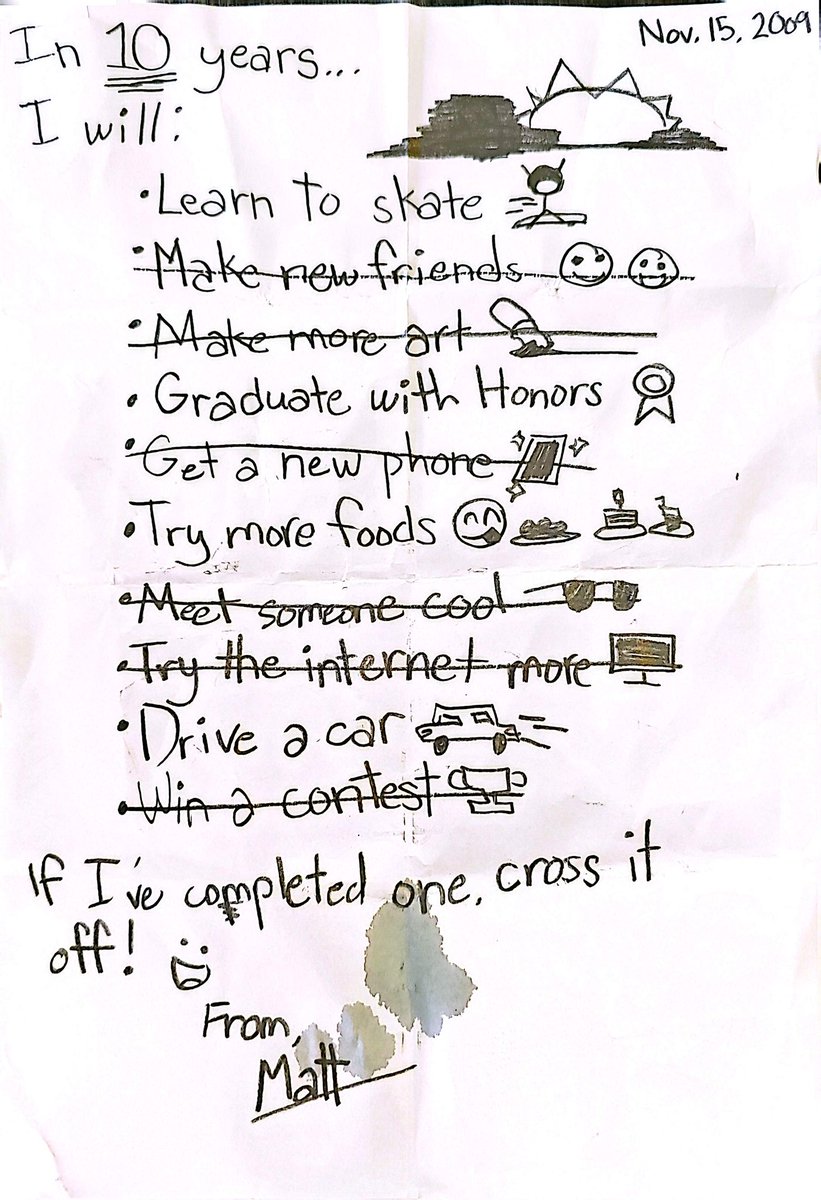 Nov. 15, 2009
In 10 years...
I will:
• Learn to skate
• Make new friends
• Make more art
• Graduate with Honors
• Get a new phone
• Try more foods
• Meet someone cool
• Try the internet more
• Drive a car
• Win a contest
If I've completed one, cross it
off!
From,
Matt